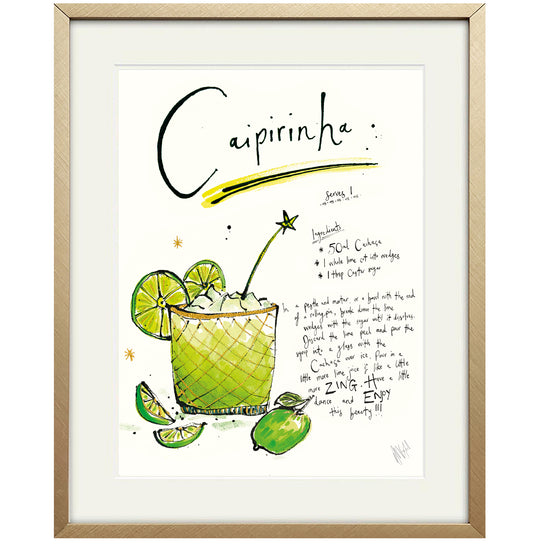 Caipirinha
serves 1
Ingredients
* 50ml Cachaca
* 1 whole lime cut into wedges
* 1 tbsp Caster sugar
In a pestle and mortar, or a bowl with the end
of a rolling pin, break down the lime
wedges with the sugar until it dissolves.
Discard the lime peel and pour the
syrup into a glass with the
Cachaca over ice. Pour in a
little more lime juice if like a little
more ZING. Have a little
dance and ENJOY
this beauty!!!